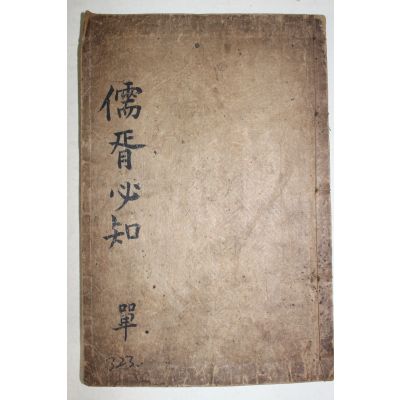 儒胥必知 單
323.